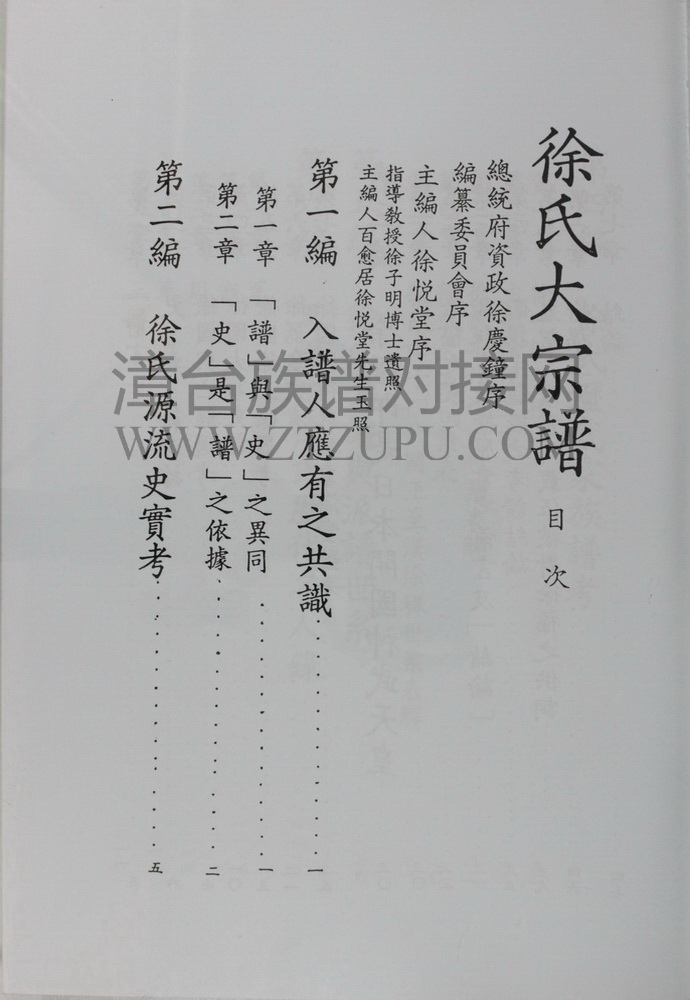 徐氏大宗譜 目次
總統府資政徐慶鐘序
編纂委員會序
主編人徐悅堂序
指導教授徐子明博士遺照
主編人百愈居徐悅堂先生玉照
第一編 入譜人應有之共識 一
第一章 「譜」與「史」之異同 一
第二章 「史」是「譜」之依據 二
第二編 徐氏源流史實考 五
漳台族谱对接网
WWW.ZTZUPU.COM